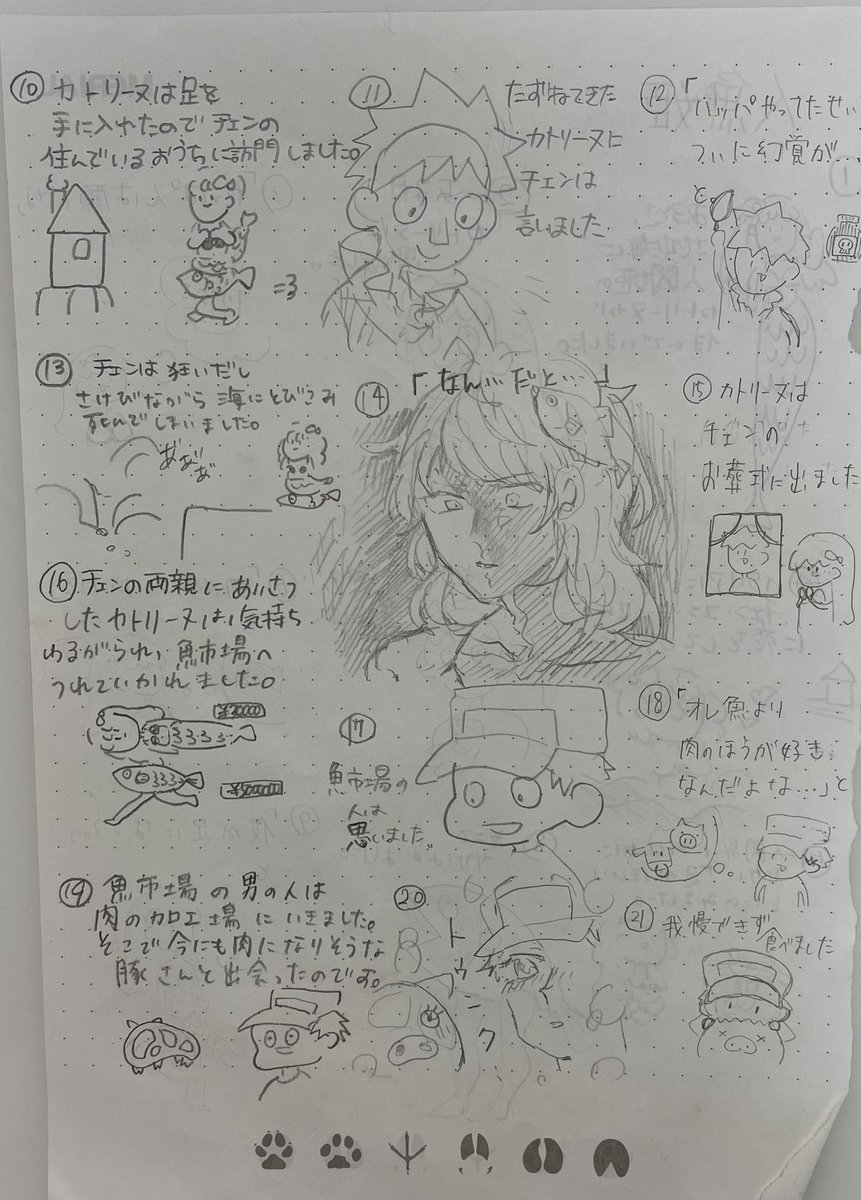 ⑩ カトリーヌは足を
手に入れたのでチェンの
住んでいるおうちに訪問しました。
=3
⑪ たずねてきた
カトリーヌに
チェンは
言いました
⑫「ハッパやってたせい
ついに幻覚が…」
と
⑬ チェンは狂いだし
さけびながら海にとびこみ
死んでしまいました。
⑭「なん…だと…
⑮ カトリーヌは
チェンの
お葬式に出ました
⑯ チェンの両親にあいさつ
したカトリーヌは気持ち
わるがられ、魚市場へ
つれていかれました。
⑰
魚市場の
人は
思いました。
⑱「オレ魚より
肉のほうが好き
なんだよな…」と
⑲ 魚市場の男の人は
肉のカロエ場にいきました。
そこで今にも肉になりそうな
豚さんと出会ったのです。
⑳ トゥンク
㉑ 我慢できず
食べました